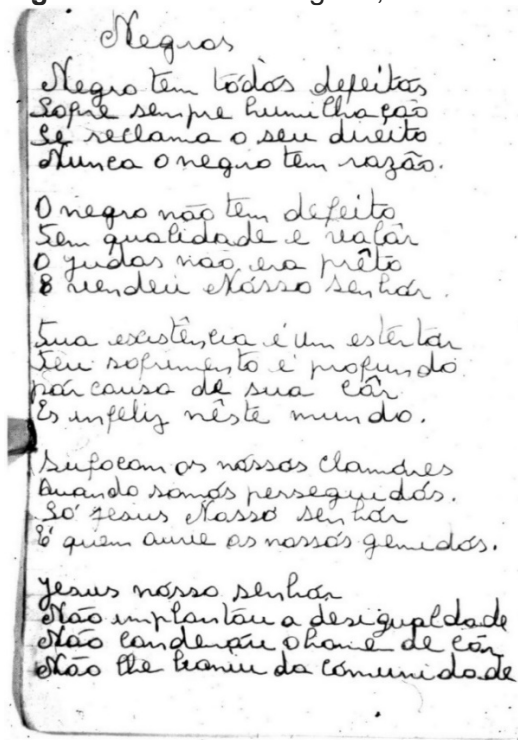 Negros
Negro tem tôdos defeitos
Sofre sempre humilhação
Se reclama o seu direito
Nunca o negro tem razão.
O negro não tem defeito
Tem qualidade e valôr
O Judas não era prêto
E vendeu Nósso Senhor.
Sua existência é um estertor
Seu sofrimento é profundo
pór causa de sua côr
És infeliz nêste mundo.
Sufocam os nóssos clamôres
Quando somos perseguidós.
Só Jesus Nosso senhór
É quem ouve os nossós gemidós.
Jesus nósso senhór
Não implantóu a desigualdade
Não condenóu o home de côr
Não lhe baniu da comunidade